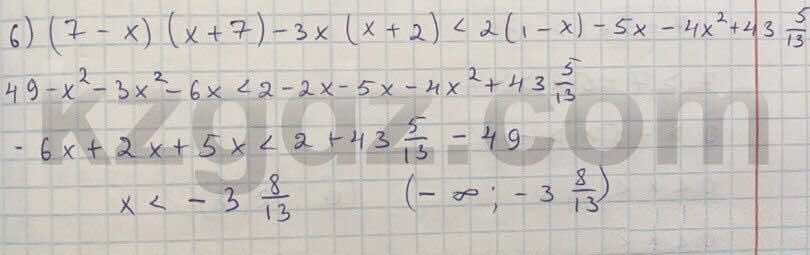 6) (7 - x) (x + 7) - 3x (x + 2) < 2 (1 - x) - 5x - 4x² + 43 5/13
49 - x² - 3x² - 6x < 2 - 2x - 5x - 4x² + 43 5/13
- 6x + 2x + 5x < 2 + 43 5/13 - 49
x < - 3 8/13 (- ∞ ; - 3 8/13)
kzgdz.com